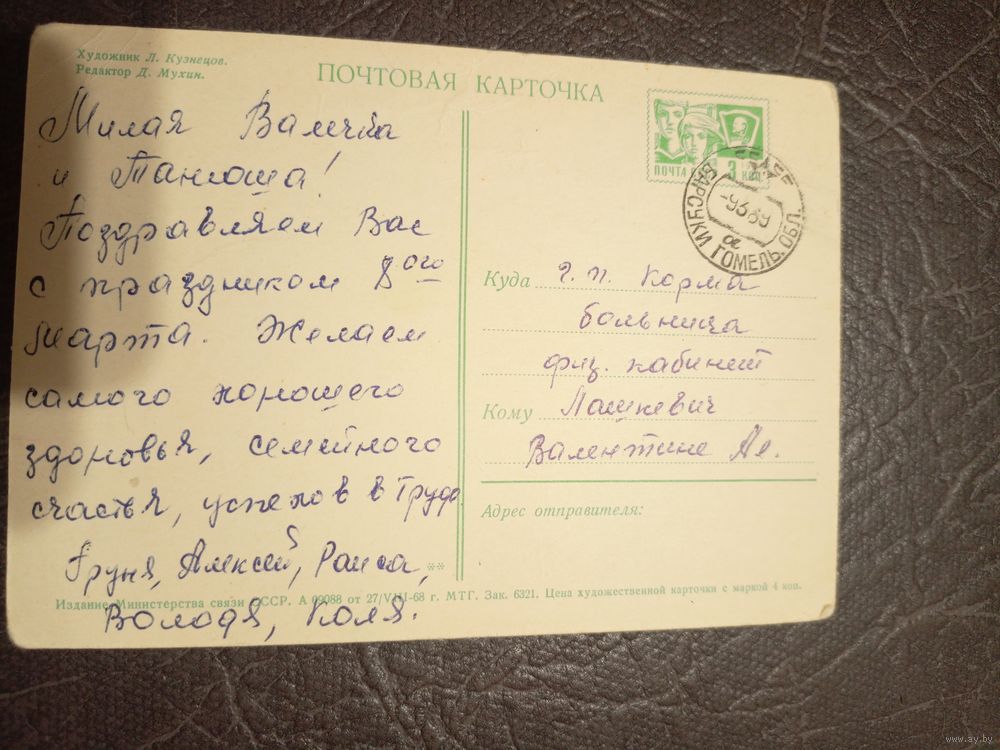 Художник Л. Кузнецов.
Редактор Д. Мухин.
ПОЧТОВАЯ КАРТОЧКА
Милая Валечка
и Танюша!
Поздравляем Вас
с праздником 8ого
марта. Желаем
самого хорошего
здоровья, семейного
счастья, успехов в труде
Груня, Алексей, Раиса,
Володя, Коля.
**
ПОЧТА
3 коп
БАРСУКИ ГОМЕЛЬ. ОБЛ.
-9369
а
Куда г. п. Корма
больница
физ. кабинет
Кому Лашкевич
Валентине Ал.
Адрес отправителя:
Издание Министерства связи СССР. А 09088 от 27/VIII-68 г. МТГ. Зак. 6321. Цена художественной карточки с маркой 4 коп.
www.ay.by